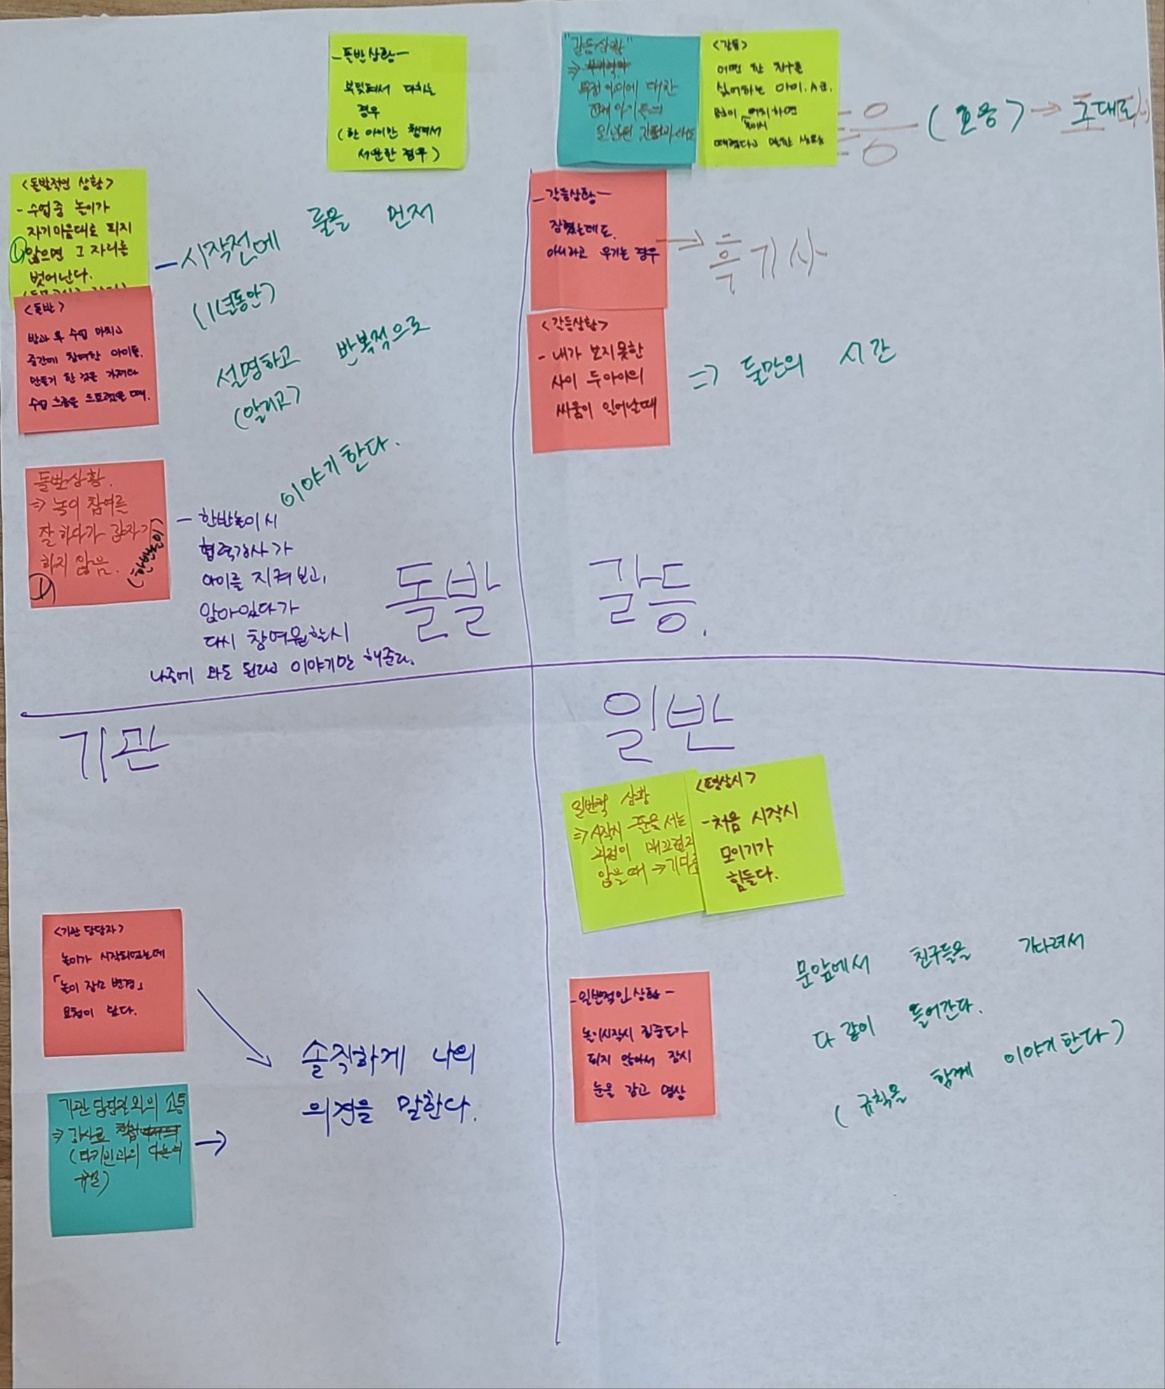 -돌반상황-
부딪혀서 다치는
경우
(한 아이만 혼나서
서운한 경우)
<돌발적인 상황>
-수업중 놀이가
자기마음대로 되지
않으면 그 자리를
벗어난다.
-시작전에 룰을 먼저
(1년동안)
설명하고 반복적으로
(알리고)
이야기한다.
<돌발>
방과 후 수업 마치고
중간에 참여한 아이들.
만들기 한 것을 가져와
돌발상황.
⇒ 놀이 참여를
잘하다가 갑자기
하지 않음.
(한반놀이)
- 한반놀이시
협력강사가
아이를 지켜보고,
앉아있다가
다시 참여원할시
나중에 와도 된다고 이야기만 해준다.
돌발
"갈등상황"
⇒
특정 아이에 대한
전체 아이들의
<갈등>
어떤 한 친구를
싫어하는 아이.
응 (호응) → 그대로
-갈등상황-
잡혔는데도.
아니라고 우기는 경우
→ 흑기사
<갈등상황>
- 내가 보지못한
사이 두아이의
싸움이 일어날때
⇒ 둘만의 시간
갈등.
기관
<기관 담당자>
놀이가 시작되었는데
「놀이 장소 변경」
요청이 있다.
기관 담당자와의 소통
⇒ 강사로
솔직하게 나의
의견을 말한다.
→
일반
일반적 상황
⇒시작시 줄을 서는
과정이 매끄럽지
않을때 →
- 처음 시작시
모이기가
힘들다.
-일반적인상황-
놀이시작시 집중도가
되지 않아서 잠시
눈을 감고 명상
문앞에서 친구들을 기다려서
다 같이 들어간다.
(규칙을 함께 이야기한다)